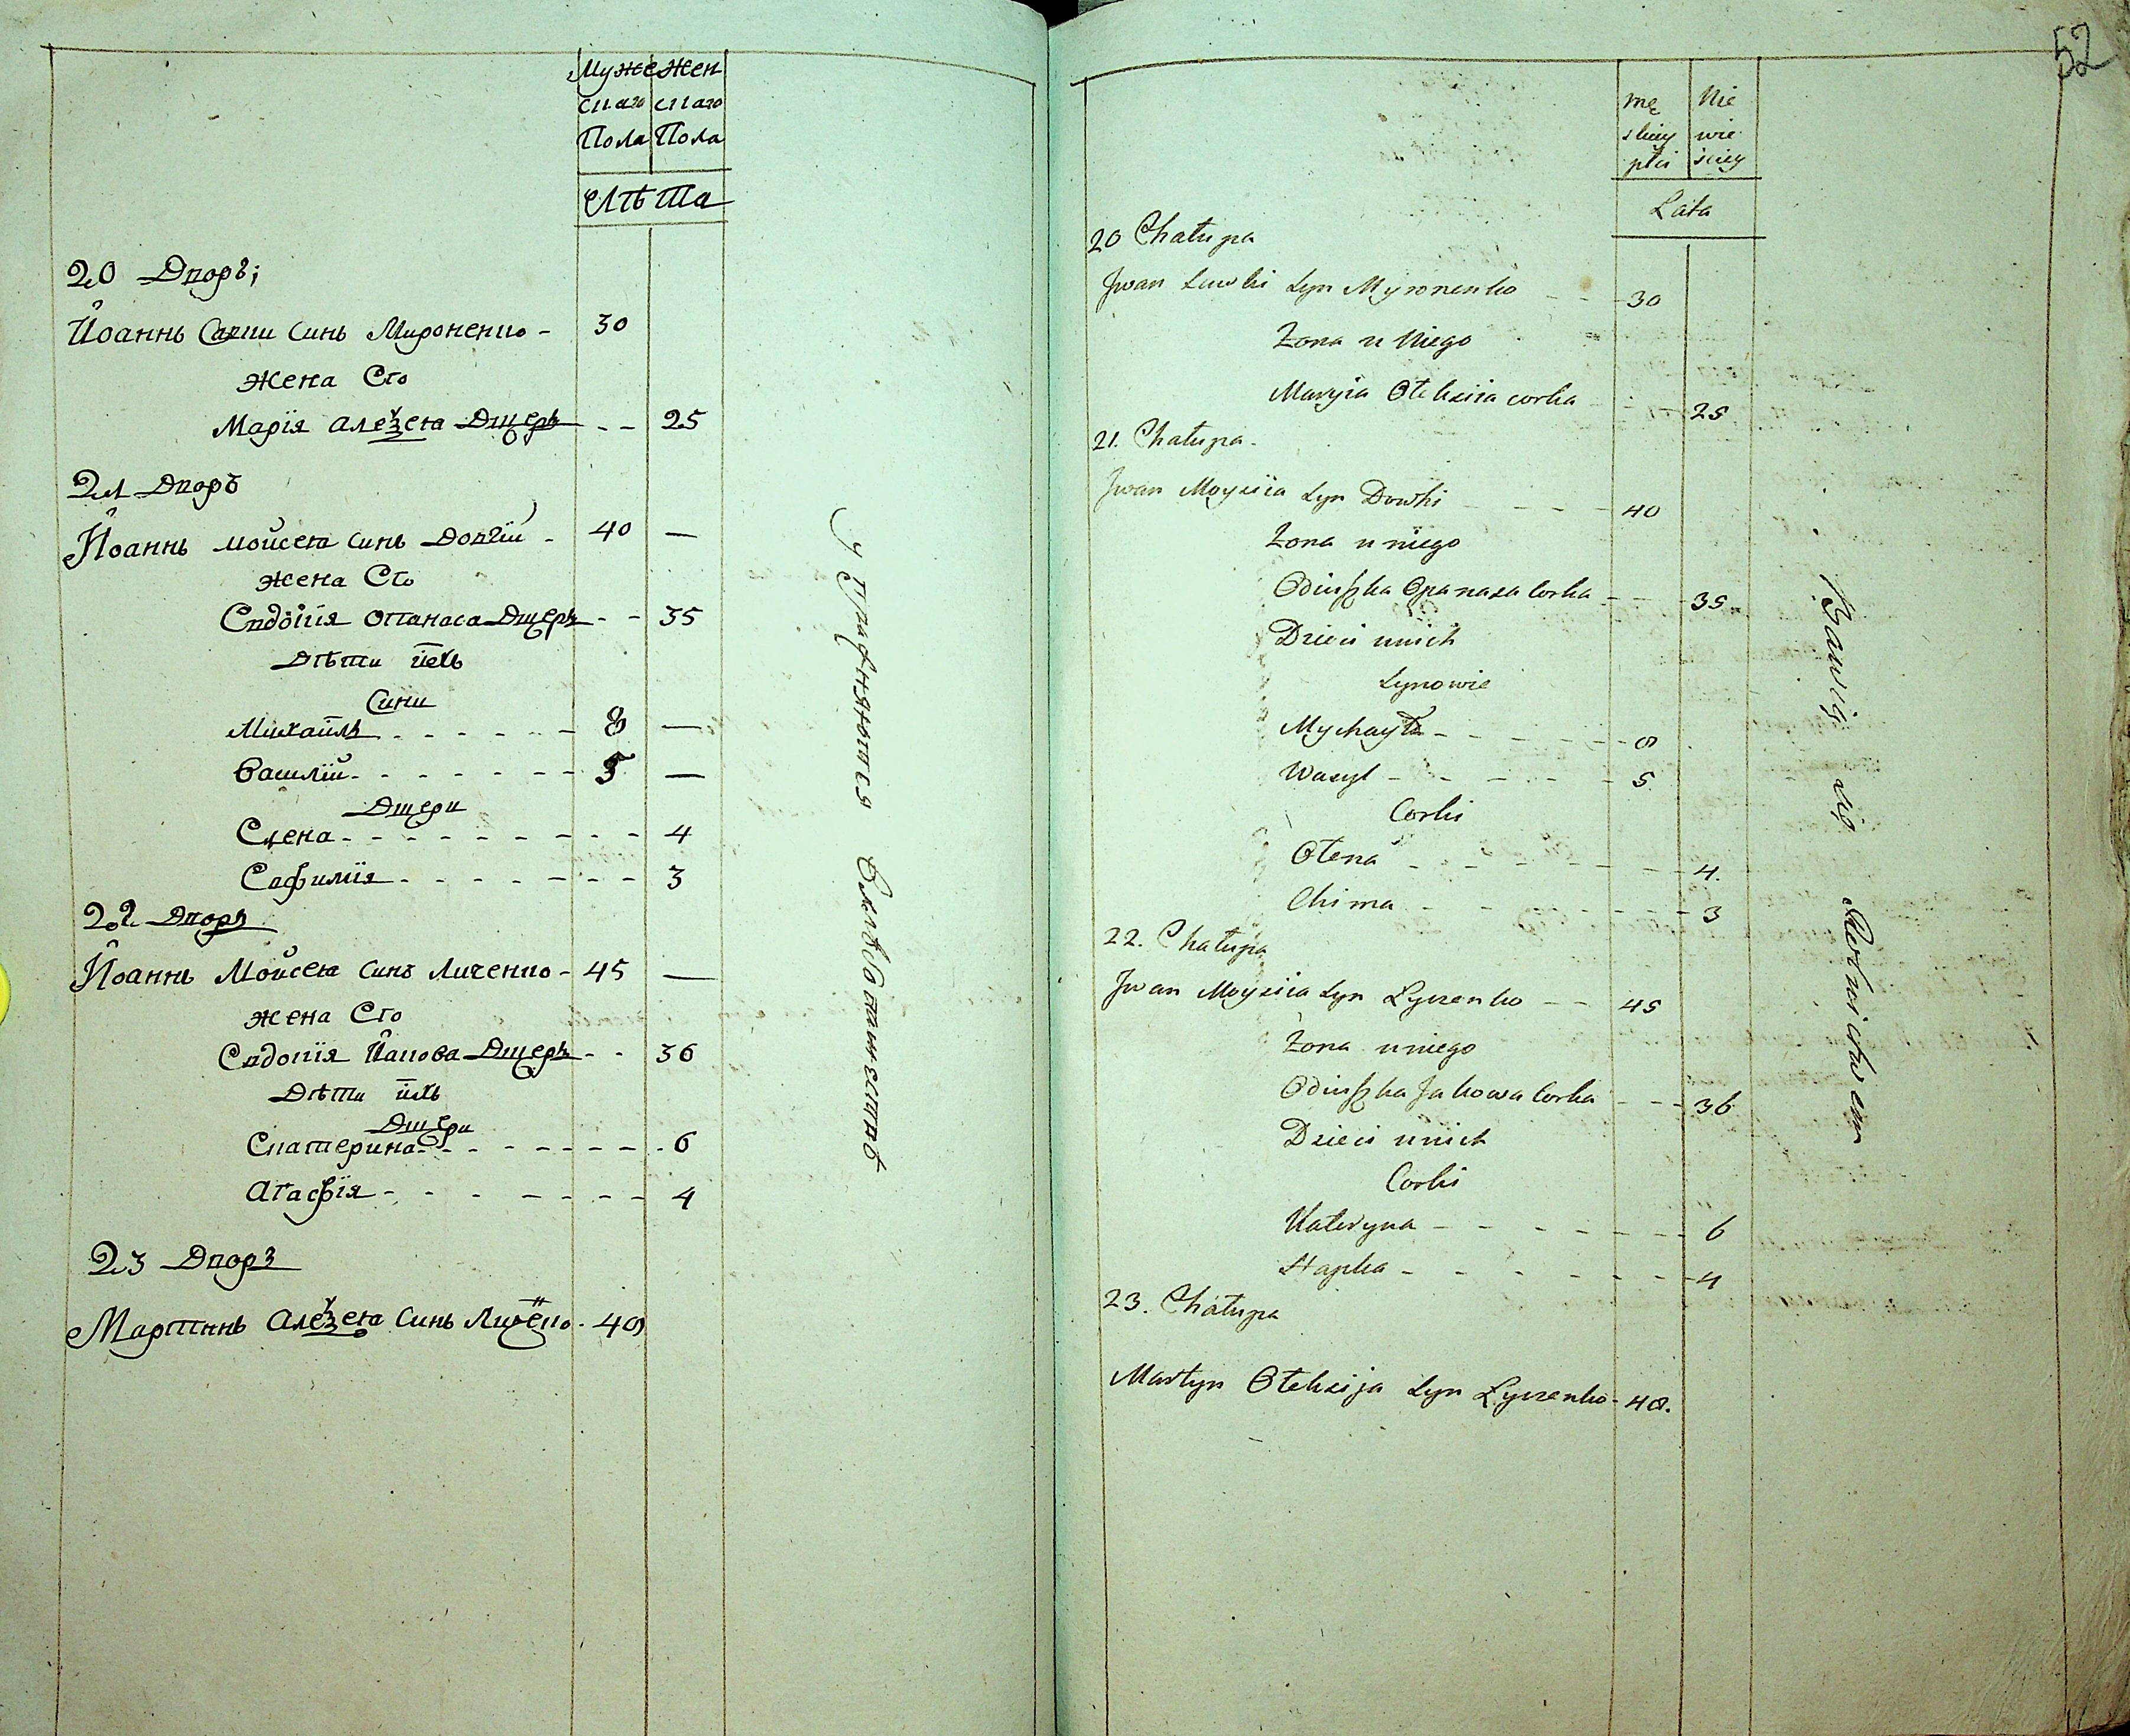 Муже Жен
скаго скаго
Пола Пола
Лѣта
20 Дворъ;
Йоаннъ Савки Синъ Мироненко - 30
Жена Его
Марія Алеѯея Дщерь - - 25
21 Дворъ
Йоаннъ Мойсея Синъ Довгій - 40 —
Жена Его
Евдокія Опанаса Дщерь - - 35
Дѣти ихъ
Сини
Михаилъ - - - - - - 8 —
Василій - - - - - - 5 —
Дщери
Елена - - - - - - - - 4
Еафимія - - - - - - - 3
22 Дворъ
Йоаннъ Мойсея Синъ Личенко - 45 —
Жена Его
Евдокія Йакова Дщерь - - 36
Дѣти ихъ
Дщери
Екатерина - - - - - - - 6
Агафія - - - - - - - 4
23 Дворъ
Мартинъ Алеѯея Синъ Личенко - 48
Упражняются
52
mę Nie
skiey wie
płci sciey
Lata
20 Chałupa
Jwan Sawki Syn Myronenko - - 30
Zona u Niego
Maryia Ołeksiia corka - - 25
21. Chałupa
Jwan Moysiia Syn Dowhi - - - - 40
Zona u niego
Odiuszka Opanasa Corka - - - 35
Dzieci unich
Synowie
Mychayło - - - - - - 8
Wasyl - - - - - - 5
Corki
Ołena - - - - - - - 4.
Chima - - - - - - - 3
22. Chałupa
Jwan Moysiia Syn Łyczenko - - 45
Zona uniego
Odiuszka Jakowa Corka - - - 36
Dzieci unich
Corki
Kateryna - - - - - - - 6
Hapka - - - - - - - 4
23. Chałupa
Martyn Ołeksija Syn Łyczenko - 48.
Bawią się Rolnictwem